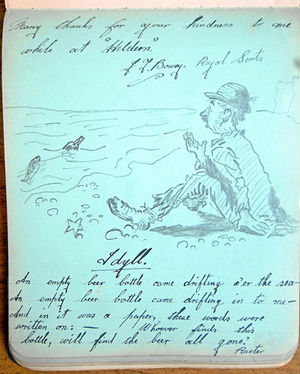 Many thanks for your kindness to me
while at "Hildeon".
J. T. Bowey. Royal Scots
Idyll.
An empty beer bottle came drifting o'er the sea-
An empty beer bottle came drifting in to me-
And in it was a paper, these words were
written on:- Whoever finds this
bottle, will find the beer all gone?